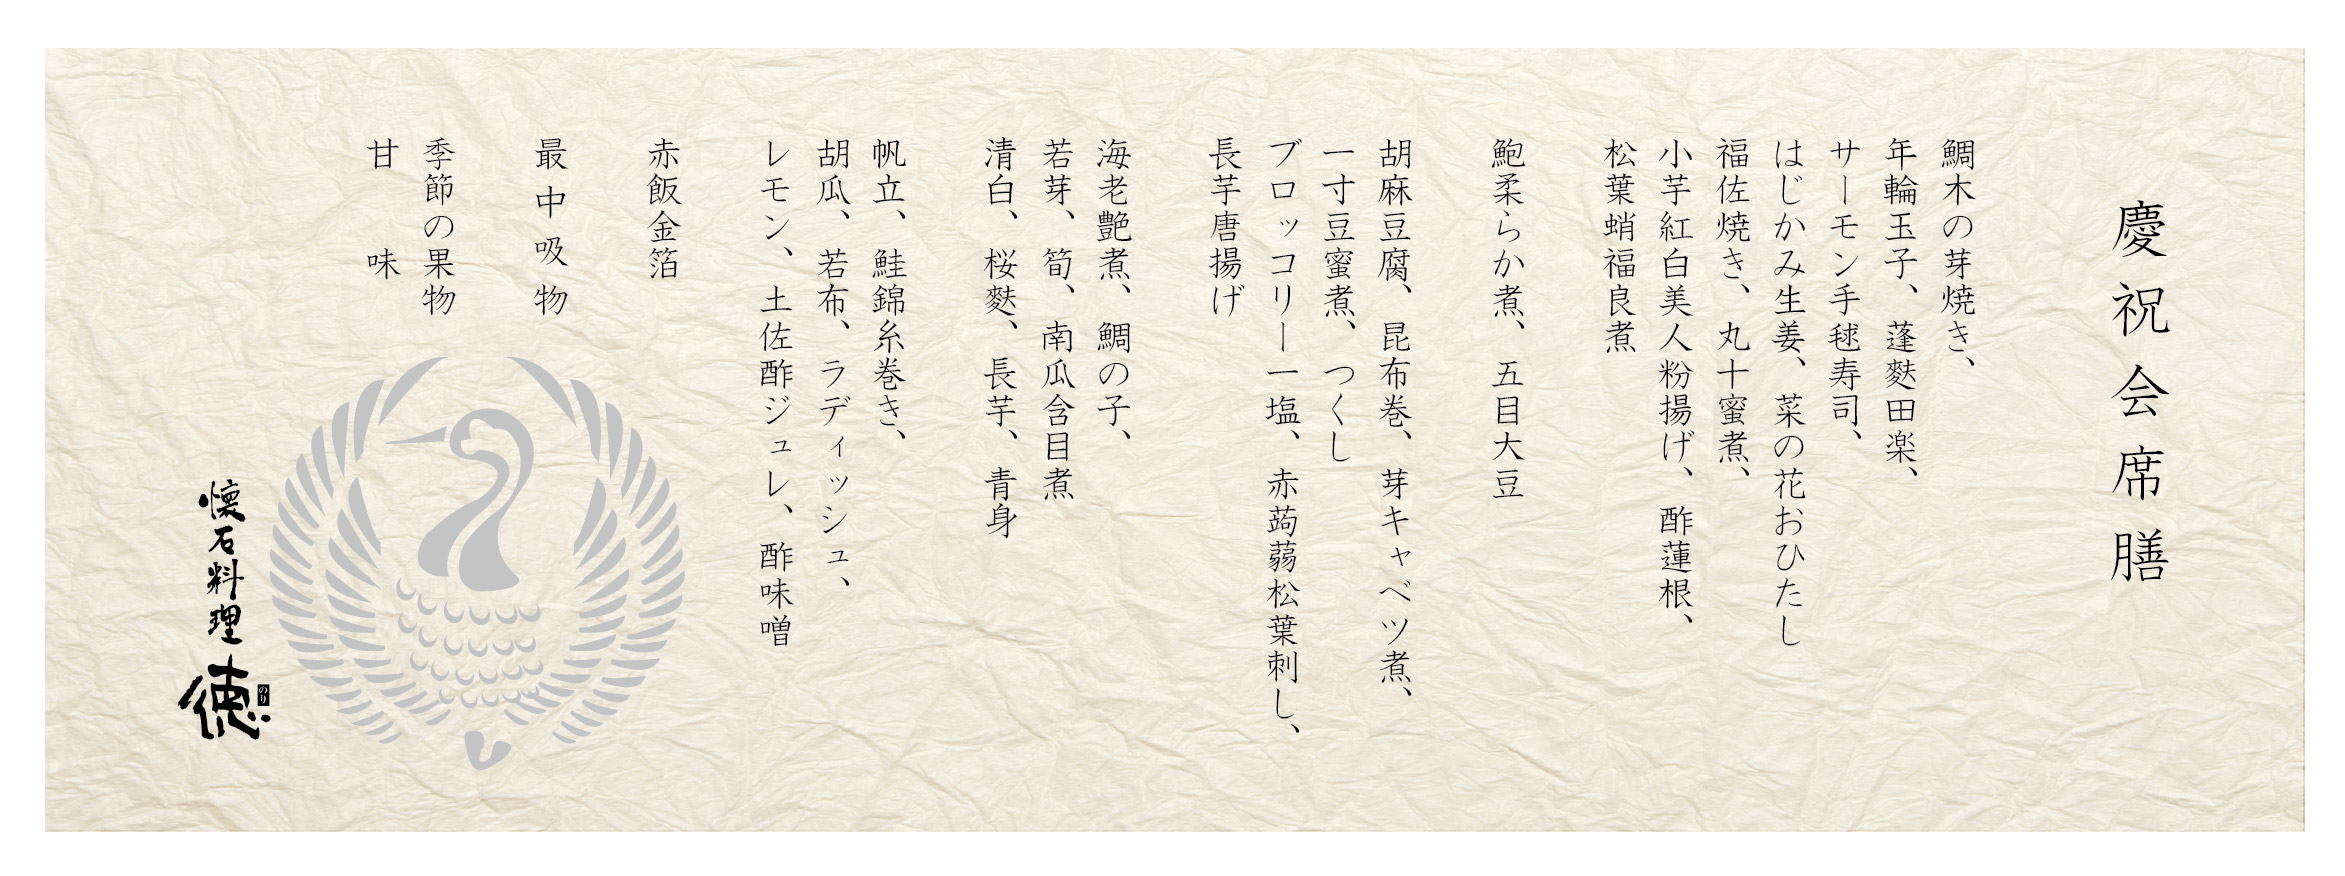 慶祝会席膳
鯛木の芽焼き、
年輪玉子、蓬麩田楽、
サーモン手毬寿司、
はじかみ生姜、菜の花おひたし
福佐焼き、丸十蜜煮、
小芋紅白美人粉揚げ、酢蓮根、
松葉蛸福良煮
鮑柔らか煮、五目大豆
胡麻豆腐、昆布巻、芽キャベツ煮、
一寸豆蜜煮、つくし
ブロッコリー一塩、赤蒟蒻松葉刺し、
長芋唐揚げ
海老艶煮、鯛の子、
若芽、筍、南瓜含目煮
清白、桜麩、長芋、青身
帆立、鮭錦糸巻き、
胡瓜、若布、ラディッシュ、
レモン、土佐酢ジュレ、酢味噌
赤飯金箔
最中吸物
季節の果物
甘味
懐石料理 徳
のり